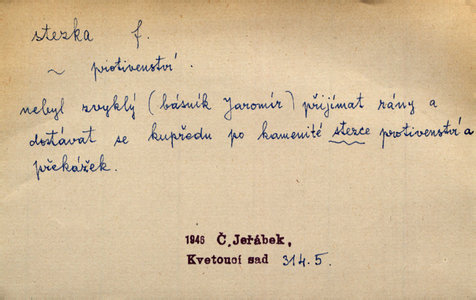 stezka f.
~ protivenství.
nebyl zvyklý (básník Jaromír) přijímat rány a
dostávat se kupředu po kamenité stezce protivenství a
překážek.
1946 Č. Jeřábek,
Kvetoucí sad 314.5.